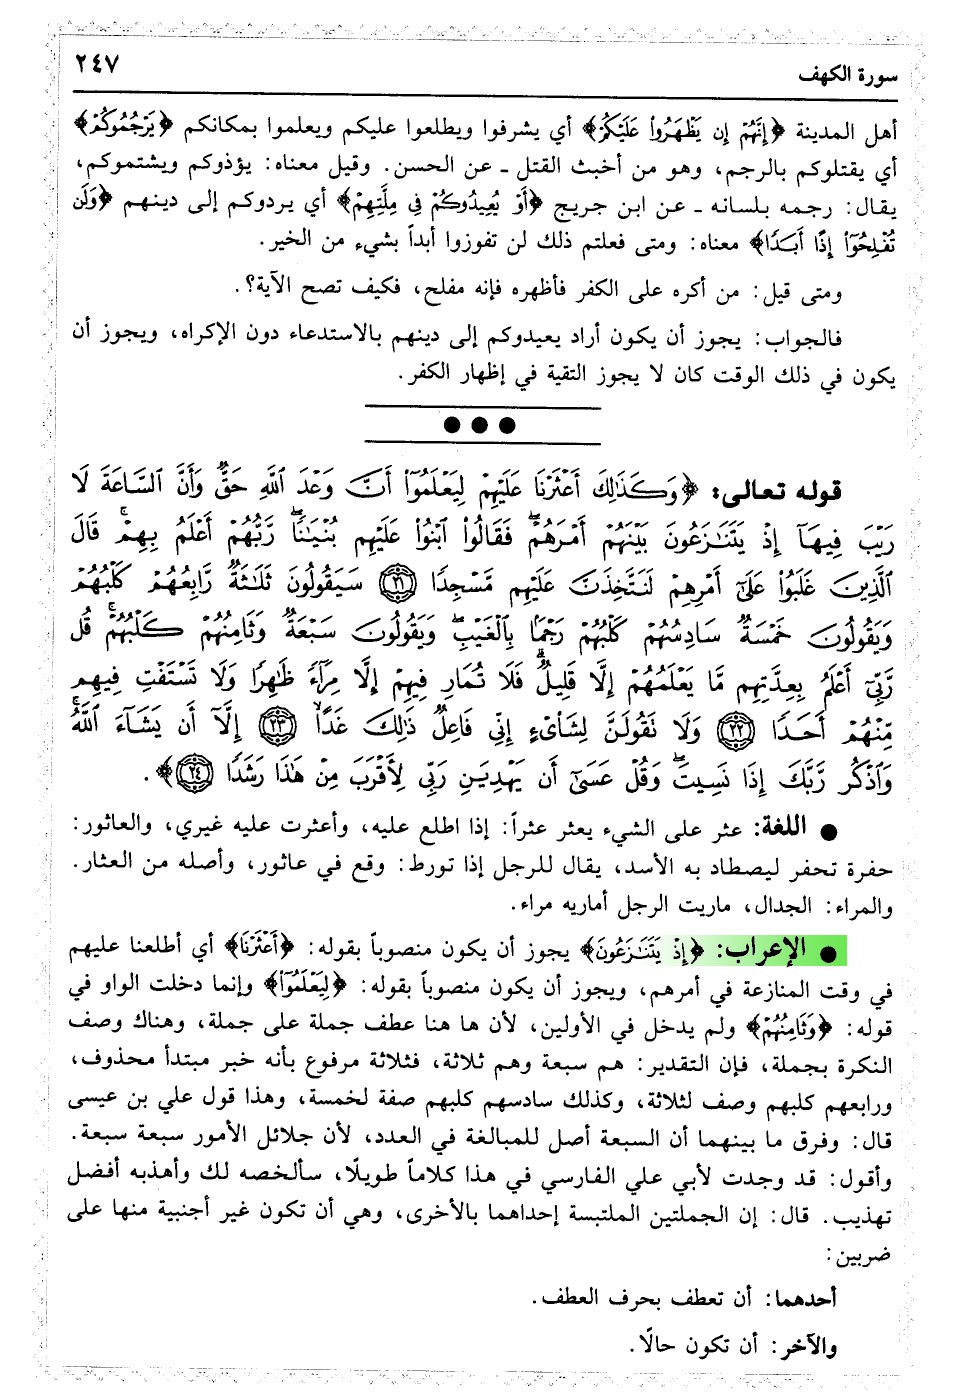 سورة الكهف
٢٤٧
أهل المدينة ﴿إِنَّهُمْ إِن يَظْهَرُوا۟ عَلَيْكُمْ﴾ أي يشرفوا ويطلعوا عليكم ويعلموا بمكانكم ﴿يَرْجُمُوكُمْ﴾
أي يقتلوكم بالرجم، وهو من أخبث القتل ـ عن الحسن. وقيل معناه: يؤذوكم ويشتموكم،
يقال: رجمه بلسانه ـ عن ابن جريج ﴿أَوْ يُعِيدُوكُمْ فِى مِلَّتِهِمْ﴾ أي يردوكم إلى دينهم ﴿وَلَن
تُفْلِحُوٓا۟ إِذًا أَبَدًا﴾ معناه: ومتى فعلتم ذلك لن تفوزوا أبداً بشيء من الخير.
ومتى قيل: من أكره على الكفر فأظهره فإنه مفلح، فكيف تصح الآية؟.
فالجواب: يجوز أن يكون أراد يعيدوكم إلى دينهم بالاستدعاء دون الإكراه، ويجوز أن
يكون في ذلك الوقت كان لا يجوز التقية في إظهار الكفر.
● ● ●
قوله تعالى: ﴿وَكَذَٰلِكَ أَعْثَرْنَا عَلَيْهِمْ لِيَعْلَمُوٓا۟ أَنَّ وَعْدَ ٱللَّهِ حَقٌّ وَأَنَّ ٱلسَّاعَةَ لَا
رَيْبَ فِيهَآ إِذْ يَتَنَٰزَعُونَ بَيْنَهُمْ أَمْرَهُمْ ۖ فَقَالُوا۟ ٱبْنُوا۟ عَلَيْهِم بُنْيَٰنًا ۖ رَّبُّهُمْ أَعْلَمُ بِهِمْ ۚ قَالَ
ٱلَّذِينَ غَلَبُوا۟ عَلَىٰٓ أَمْرِهِمْ لَنَتَّخِذَنَّ عَلَيْهِم مَّسْجِدًا ﴿٢١﴾ سَيَقُولُونَ ثَلَٰثَةٌ رَّابِعُهُمْ كَلْبُهُمْ
وَيَقُولُونَ خَمْسَةٌ سَادِسُهُمْ كَلْبُهُمْ رَجْمًۢا بِٱلْغَيْبِ ۖ وَيَقُولُونَ سَبْعَةٌ وَثَامِنُهُمْ كَلْبُهُمْ ۚ قُل
رَّبِّىٓ أَعْلَمُ بِعِدَّتِهِم مَّا يَعْلَمُهُمْ إِلَّا قَلِيلٌ ۗ فَلَا تُمَارِ فِيهِمْ إِلَّا مِرَآءً ظَٰهِرًا وَلَا تَسْتَفْتِ فِيهِم
مِّنْهُمْ أَحَدًا ﴿٢٢﴾ وَلَا تَقُولَنَّ لِشَا۟ىْءٍ إِنِّى فَاعِلٌ ذَٰلِكَ غَدًا ﴿٢٣﴾ إِلَّآ أَن يَشَآءَ ٱللَّهُ ۚ
وَٱذْكُر رَّبَّكَ إِذَا نَسِيتَ ۖ وَقُلْ عَسَىٰٓ أَن يَهْدِيَنِ رَبِّى لِأَقْرَبَ مِنْ هَٰذَا رَشَدًا ﴿٢٤﴾﴾.
● اللغة: عثر على الشيء يعثر عثراً: إذا اطلع عليه، وأعثرت عليه غيري، والعاثور:
حفرة تحفر ليصطاد به الأسد، يقال للرجل إذا تورط: وقع في عاثور، وأصله من العثار.
والمراء: الجدال، ماريت الرجل أماريه مراء.
● الإعراب: ﴿إِذْ يَتَنَٰزَعُونَ﴾ يجوز أن يكون منصوباً بقوله: ﴿أَعْثَرْنَا﴾ أي أطلعنا عليهم
في وقت المنازعة في أمرهم، ويجوز أن يكون منصوباً بقوله: ﴿لِيَعْلَمُوٓا۟﴾ وإنما دخلت الواو في
قوله: ﴿وَثَامِنُهُمْ﴾ ولم يدخل في الأولين، لأن ها هنا عطف جملة على جملة، وهناك وصف
النكرة بجملة، فإن التقدير: هم سبعة وهم ثلاثة، فثلاثة مرفوع بأنه خبر مبتدأ محذوف،
ورابعهم كلبهم وصف لثلاثة، وكذلك سادسهم كلبهم صفة لخمسة، وهذا قول علي بن عيسى
قال: وفرق ما بينهما أن السبعة أصل للمبالغة في العدد، لأن جلائل الأمور سبعة سبعة.
وأقول: قد وجدت لأبي علي الفارسي في هذا كلاماً طويلًا، سألخصه لك وأهذبه أفضل
تهذيب. قال: إن الجملتين الملتبسة إحداهما بالأخرى، وهي أن تكون غير أجنبية منها على
ضربين:
أحدهما: أن تعطف بحرف العطف.
والآخر: أن تكون حالًا.